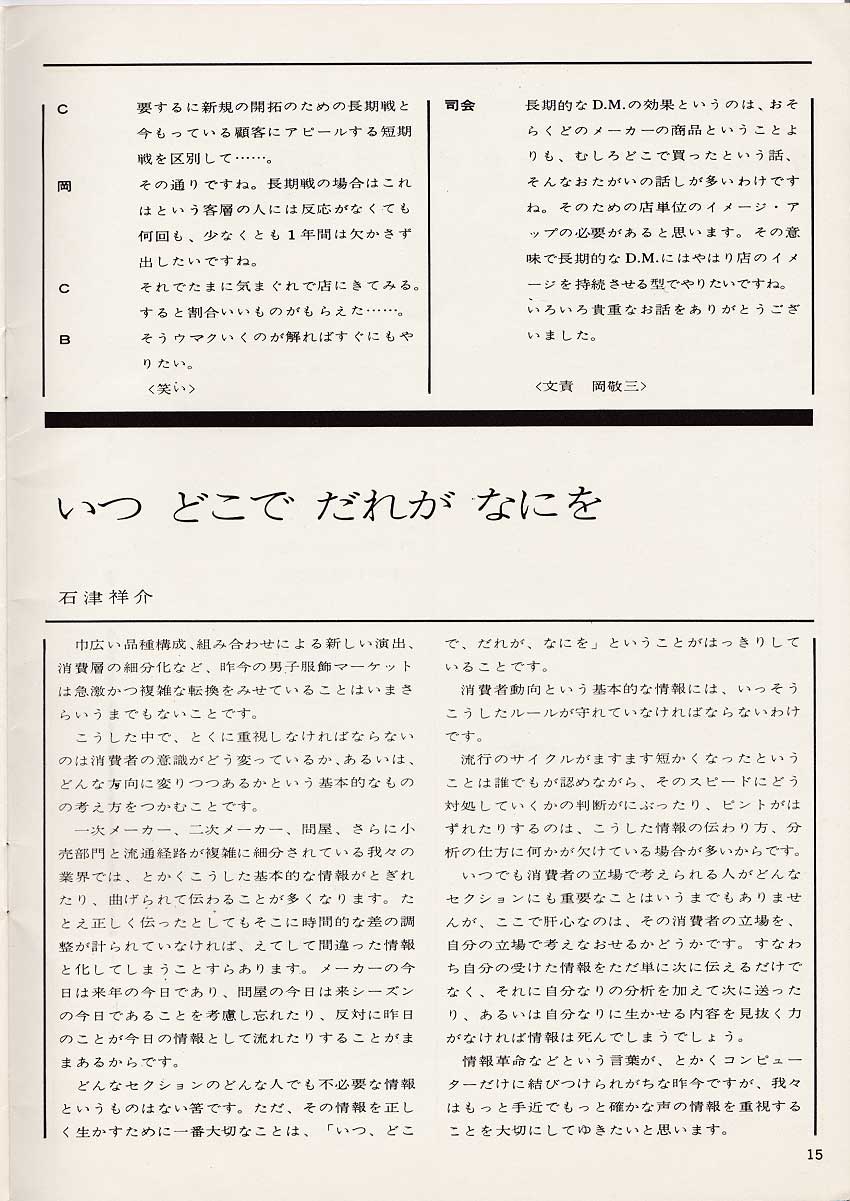 C 要するに新規の開拓のための長期戦と
今もっている顧客にアピールする短期
戦を区別して……。
岡 その通りですね。長期戦の場合はこれ
はという客層の人には反応がなくても
何回も、少なくとも1年間は欠かさず
出したいですね。
C それでたまに気まぐれで店にきてみる。
すると割合いいものがもらえた……。
B そうウマクいくのが解ればすぐにもや
りたい。
〈笑い〉
司会 長期的なD.M.の効果というのは、おそ
らくどのメーカーの商品ということよ
りも、むしろどこで買ったという話、
そんなおたがいの話しが多いわけです
ね。そのための店単位のイメージ・ア
ップの必要があると思います。その意
味で長期的なD.M.にはやはり店のイメ
ージを持続させる型でやりたいですね。
いろいろ貴重なお話をありがとうござ
いました。
〈文責 岡敬三〉
いつ どこで だれが なにを
石津祥介
巾広い品種構成、組み合わせによる新しい演出、
消費層の細分化など、昨今の男子服飾マーケット
は急激かつ複雑な転換をみせていることはいまさ
らいうまでもないことです。
こうした中で、とくに重視しなければならない
のは消費者の意識がどう変っているか、あるいは、
どんな方向に変りつつあるかという基本的なもの
の考え方をつかむことです。
一次メーカー、二次メーカー、問屋、さらに小
売部門と流通経路が複雑に細分されている我々の
業界では、とかくこうした基本的な情報がとぎれ
たり、曲げられて伝わることが多くなります。た
とえ正しく伝ったとしてもそこに時間的な差の調
整が計られていなければ、えてして間違った情報
と化してしまうことすらあります。メーカーの今
日は来年の今日であり、問屋の今日は来シーズン
の今日であることを考慮し忘れたり、反対に昨日
のことが今日の情報として流れたりすることがま
まあるからです。
どんなセクションのどんな人でも不必要な情報
というものはない筈です。ただ、その情報を正し
く生かすために一番大切なことは、「いつ、どこ
で、だれが、なにを」ということがはっきりして
いることです。
消費者動向という基本的な情報には、いっそう
こうしたルールが守れていなければならないわけ
です。
流行のサイクルがますます短かくなったという
ことは誰でもが認めながら、そのスピードにどう
対処していくかの判断がにぶったり、ピントがは
ずれたりするのは、こうした情報の伝わり方、分
析の仕方に何かが欠けている場合が多いからです。
いつでも消費者の立場で考えられる人がどんな
セクションにも重要なことはいうまでもありませ
んが、ここで肝心なのは、その消費者の立場を、
自分の立場で考えなおせるかどうかです。すなわ
ち自分の受けた情報をただ単に次に伝えるだけで
なく、それに自分なりの分析を加えて次に送った
り、あるいは自分なりに生かせる内容を見抜く力
がなければ情報は死んでしまうでしょう。
情報革命などという言葉が、とかくコンピュー
ターだけに結びつけられがちな昨今ですが、我々
はもっと手近でもっと確かな声の情報を重視する
ことを大切にしてゆきたいと思います。
15